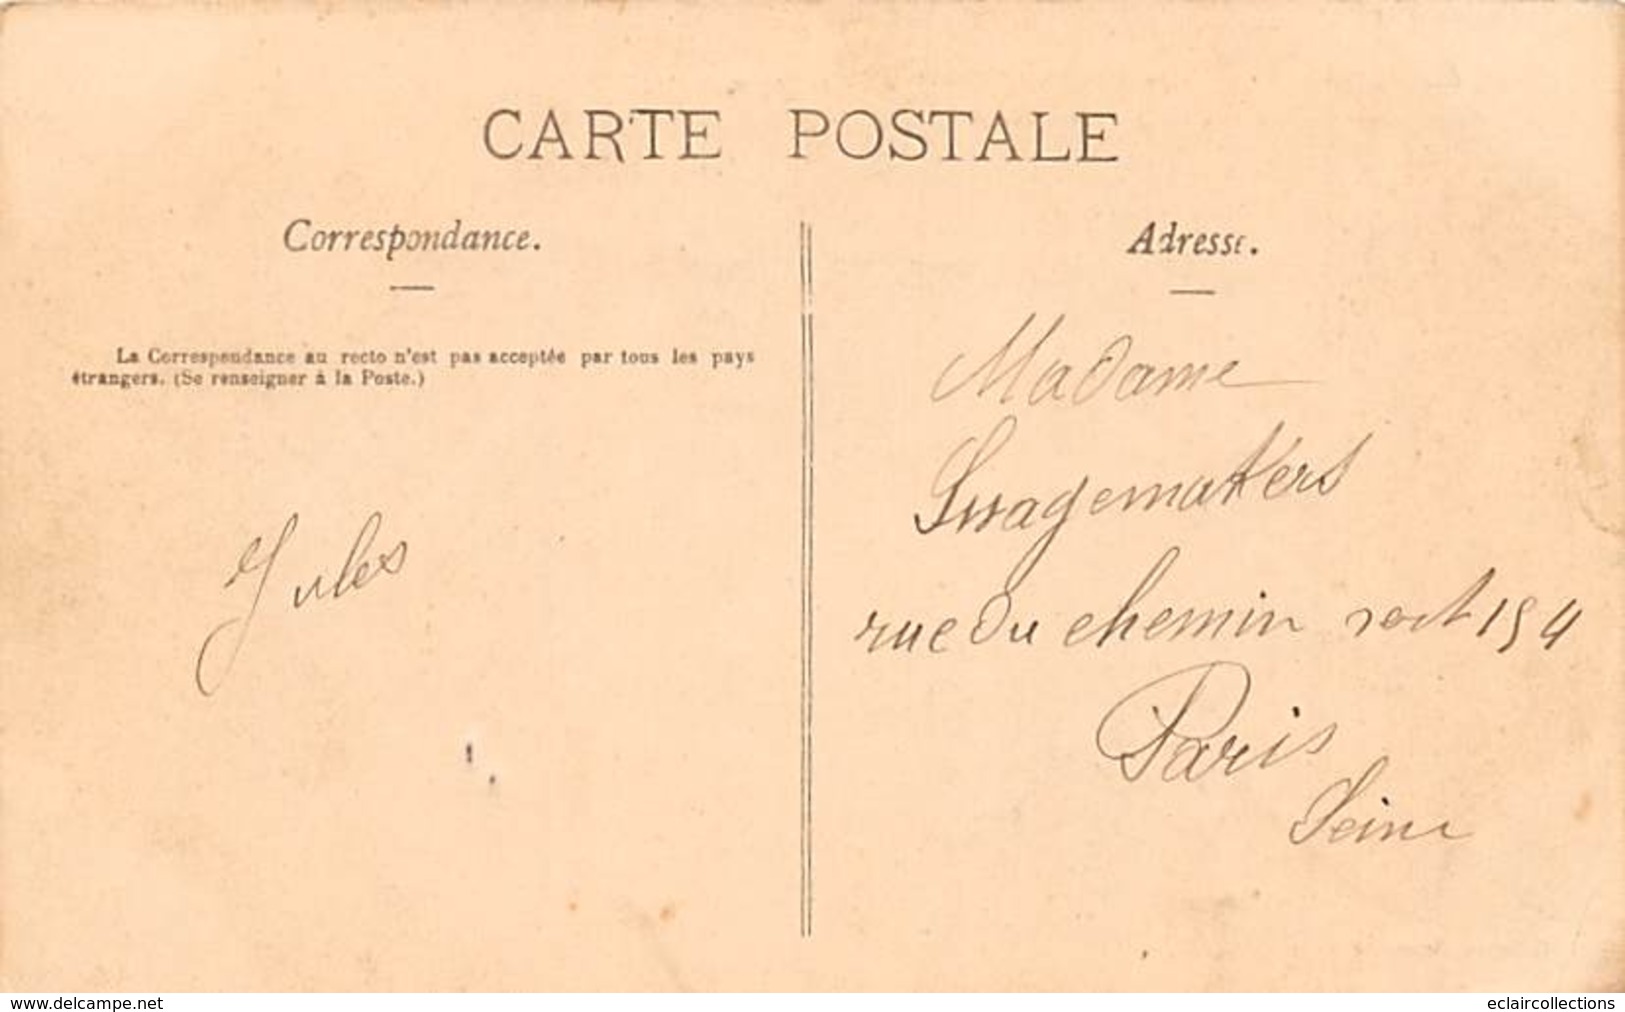 CARTE POSTALE
Correspondance.
Adresse.
La Correspondance au recto n'est pas acceptée par tous les pays
étrangers. (Se renseigner à la Poste.)
Jules
Madame
Swagemakers
rue du chemin vert 154
Paris
Seine
www.delcampe.net
eclaircollections